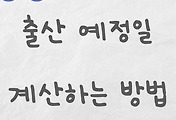 출산 예정일
계산하는 방법